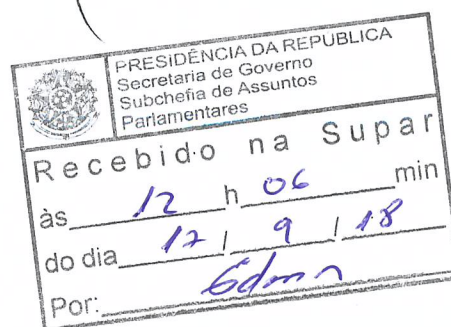 PRESIDÊNCIA DA REPUBLICA
Secretaria de Governo
Subchefia de Assuntos
Parlamentares
Recebido na Supar
às 12 h 06 min
do dia 12 / 9 / 18
Por: